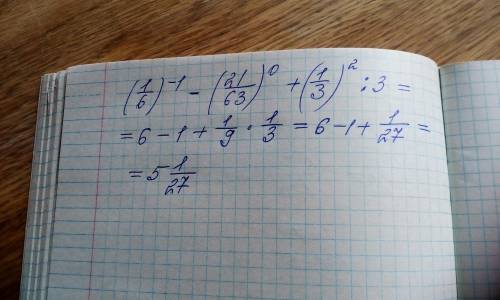 (1/6)^-1 - (21/63)^0 + (1/3)^2 : 3 =
= 6 - 1 + 1/9 · 1/3 = 6 - 1 + 1/27 =
= 5 1/27